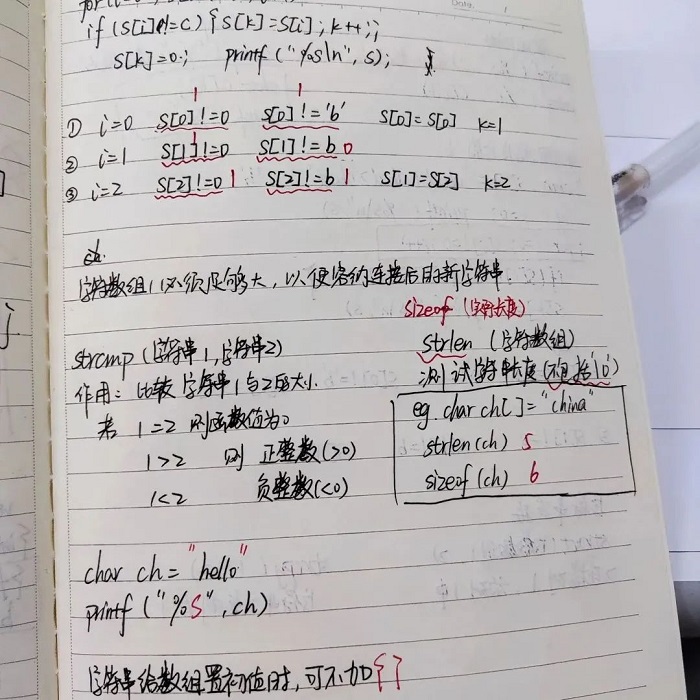 if (S[i]!=c) {S[k]=S[i]; k++;}
S[k]=0; printf("%s\n", s);
1 1
① i=0 S[0]!=0 S[0]!='b' S[0]=S[0] k=1
② i=1 S[1]!=0 S[1]!=b 0
③ i=2 S[2]!=0 1 S[2]!=b 1 S[1]=S[2] k=2
字符数组1必须足够大，以便容纳连接后的新字符串.
sizeof (字符长度)
strcmp (字符串1,字符串2)
strlen (字符数组)
作用：比较字符串1与2的大小.
测试字符串长度(不包括'\0')
若 1=2 则函数值为0
1>2 则 正整数(>0)
1<2 负整数(<0)
eg. char ch[]="china"
strlen(ch) 5
sizeof(ch) 6
char ch="hello"
printf("%s",ch)
字符串给数组置初值时,可不加{}